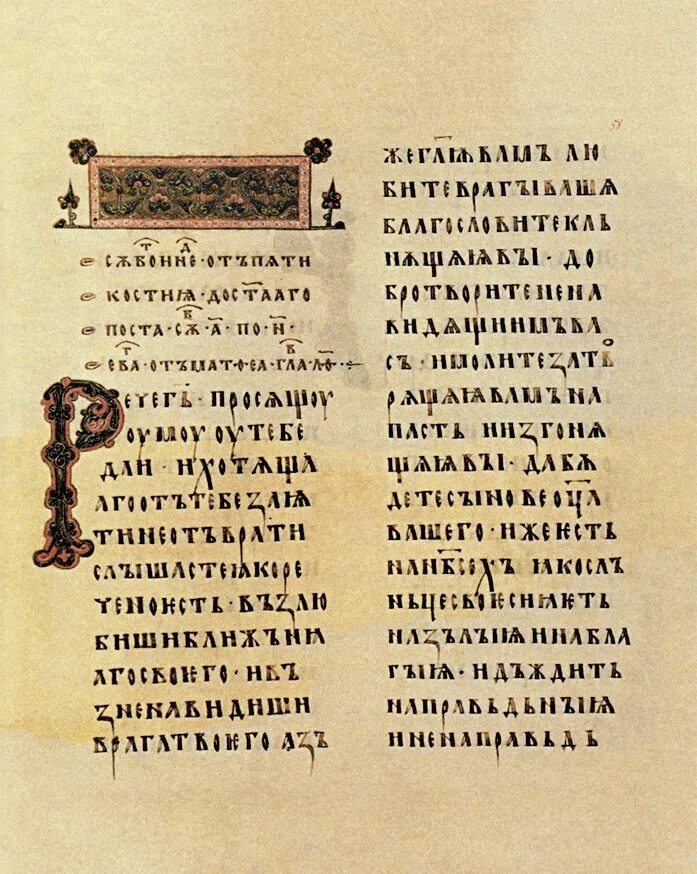 СѪБОТНИЕ · Д · ОТЪ ПѦТИ
КОСТИꙖ · ДОСТААГО
ПОСТА · СѪБ · А · ПО · Н ·
ЕВА · ОТЪ МАТѲЕА · ГЛА · ЛО҃ ·
РЕЧЕ ГЬ · ПРОСѦЩОУ
ОУМОУ ОУ ТЕБЕ
ДАИ · И ХОТѦЩА
АГО ОТЪ ТЕБЕ ЗАꙖ
ТИ НЕ ОТЪВРАТИ
СЛЫШАСТЕ ꙖКО РЕ
ЧЕНО ѤСТЬ · ВЪЗЛЮ
БИШИ БЛИЖЬНꙖ
АГО СВОѤГО · И ВЪ
ЗНЕНАВИДИШИ
ВРАГА ТВОѤГО АЗЪ
ЖЕ ГЛ҃Ѭ ВАМЪ ЛЮ
БИТЕ ВРАГЫ ВАШѦ
БЛАГОСЛОВИТЕ КЛЬ
НѦЩѦѨ ВЫ · ДО
БРО ТВОРИТЕ НЕНА
ВИДѦЩИИМЪ ВА
СЪ · И МОЛИТЕ ЗА ТВО
РѦЩѦѨ ВАМЪ НА
ПАСТЬ И ИЗГОНѦ
ЩѦѨ ВЫ · ДА БѪ
ДЕТЕ СЫНОВЕ ОЦ҃А
ВАШЕГО · ИЖЕ ѤСТЬ
НА НБ҃СЕХЪ ꙖКО СЛЪ
НЬЦЕ СВОѤ СИꙖѤТЬ
НА ЗЪЛЫѨ И НА БЛА
ГЫѨ · И ДЪЖДИТЬ
НА ПРАВЬДЬНЫѨ
И НЕ НА ПРАВЬДЬ